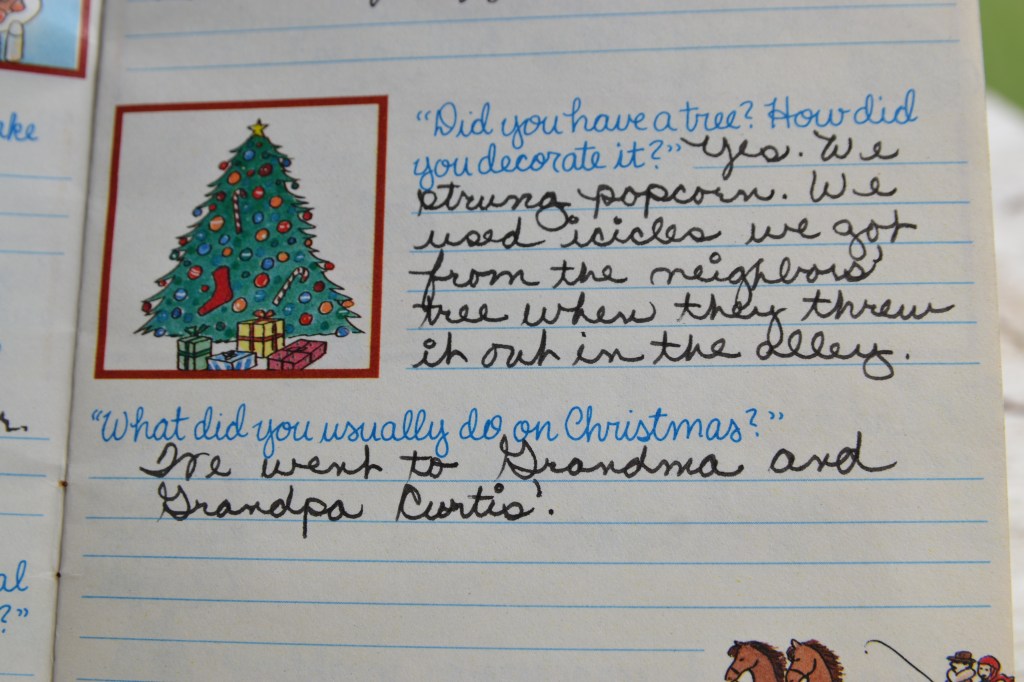 "Did you have a tree? How did
you decorate it?" Yes. We
strung popcorn. We
used icicles we got
from the neighbors'
tree when they threw
it out in the alley.
"What did you usually do on Christmas?"
We went to Grandma and
Grandpa Curtis'.